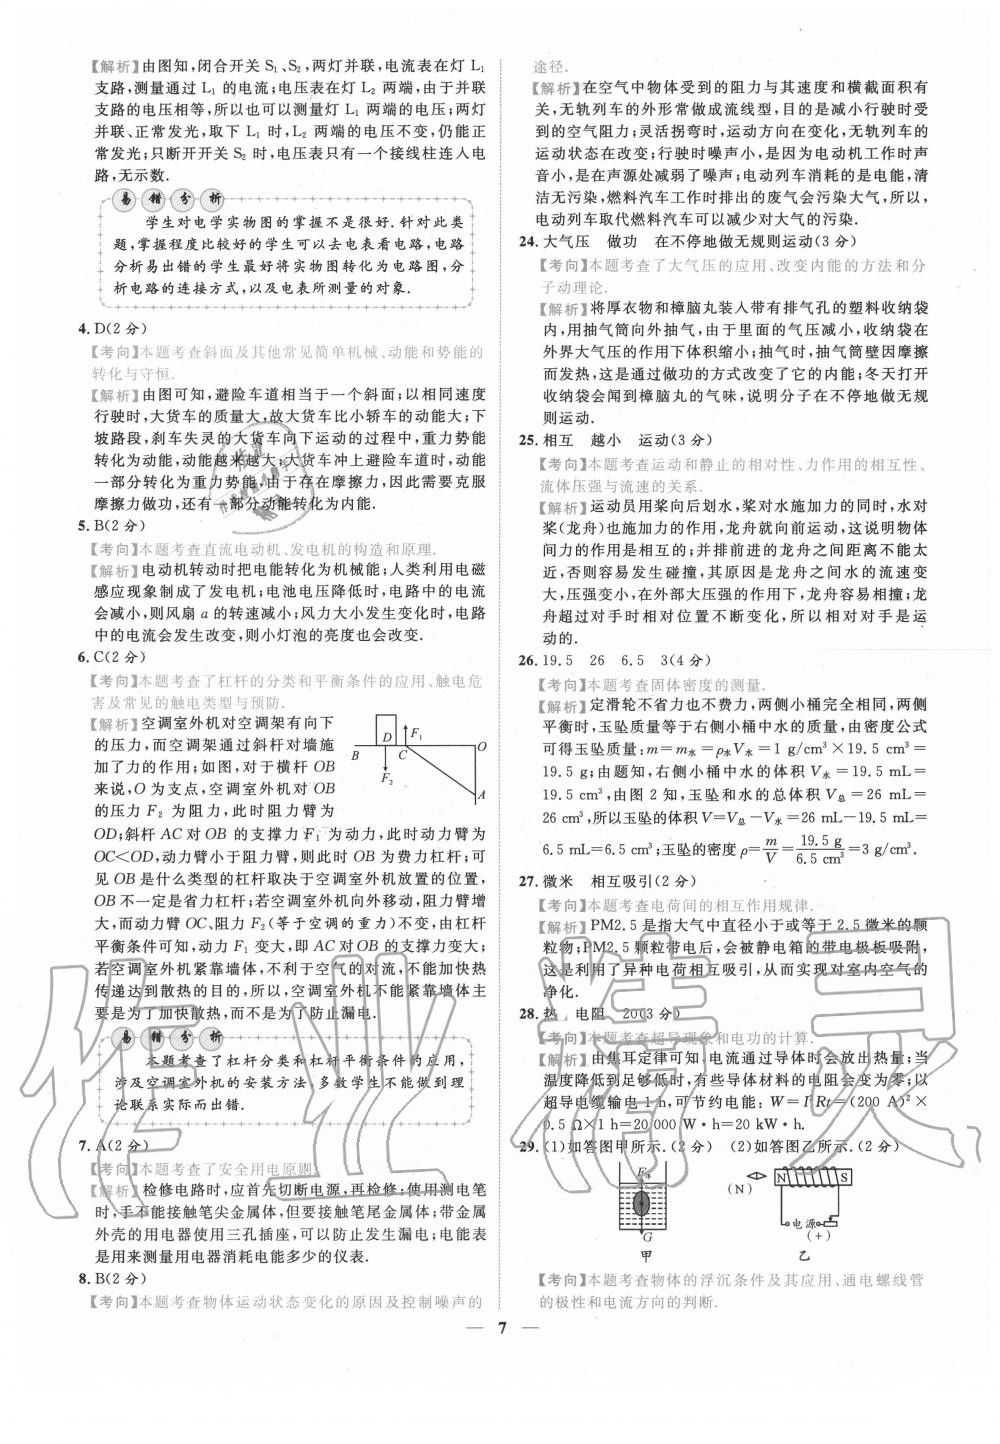 【解析】由图知,闭合开关 S₁、S₂,两灯并联,电流表在灯 L₁
支路,测量通过 L₁ 的电流;电压表在灯 L₂ 两端,由于并联
支路的电压相等,所以也可以测量灯 L₁ 两端的电压;两灯
并联、正常发光,取下 L₁ 时,L₂ 两端的电压不变,仍能正
常发光;只断开开关 S₂ 时,电压表只有一个接线柱连入电
路,无示数.
易错分析
学生对电学实物图的掌握不是很好.针对此类
题,掌握程度比较好的学生可以去电表看电路,电路
分析易出错的学生最好将实物图转化为电路图,分
析电路的连接方式,以及电表所测量的对象.
4. D(2 分)
【考向】本题考查斜面及其他常见简单机械、动能和势能的
转化与守恒.
【解析】由图可知,避险车道相当于一个斜面;以相同速度
行驶时,大货车的质量大,故大货车比小轿车的动能大;下
坡路段,刹车失灵的大货车向下运动的过程中,重力势能
转化为动能,动能越来越大;大货车冲上避险车道时,动能
一部分转化为重力势能,由于存在摩擦力,因此需要克服
摩擦力做功,还有一部分动能转化为内能.
5. B(2 分)
【考向】本题考查直流电动机、发电机的构造和原理.
【解析】电动机转动时把电能转化为机械能;人类利用电磁
感应现象制成了发电机;电池电压降低时,电路中的电流
会减小,则风扇 a 的转速减小;风力大小发生变化时,电路
中的电流会发生改变,则小灯泡的亮度也会改变.
6. C(2 分)
【考向】本题考查了杠杆的分类和平衡条件的应用、触电危
害及常见的触电类型与预防.
【解析】空调室外机对空调架有向下
的压力,而空调架通过斜杆对墙施
加了力的作用;如图,对于横杆 OB
来说,O 为支点,空调室外机对 OB
的压力 F₂ 为阻力,此时阻力臂为
B D C F₁ O F₂ A
OD;斜杆 AC 对 OB 的支撑力 F₁ 为动力,此时动力臂为
OC<OD,动力臂小于阻力臂,则此时 OB 为费力杠杆;可
见 OB 是什么类型的杠杆取决于空调室外机放置的位置,
OB 不一定是省力杠杆;若空调室外机向外移动,阻力臂增
大,而动力臂 OC、阻力 F₂(等于空调的重力)不变,由杠杆
平衡条件可知,动力 F₁ 变大,即 AC 对 OB 的支撑力变大;
若空调室外机紧靠墙体,不利于空气的对流,不能加快热
传递达到散热的目的,所以,空调室外机不能紧靠墙体主
要是为了加快散热,而不是为了防止漏电.
易错分析
本题考查了杠杆分类和杠杆平衡条件的应用,
涉及空调室外机的安装方法,多数学生不能做到理
论联系实际而出错.
7. A(2 分)
【考向】本题考查了安全用电原则.
【解析】检修电路时,应首先切断电源,再检修;使用测电笔
时,手不能接触笔尖金属体,但要接触笔尾金属体;带金属
外壳的用电器使用三孔插座,可以防止发生漏电;电能表
是用来测量用电器消耗电能多少的仪表.
8. B(2 分)
【考向】本题考查物体运动状态变化的原因及控制噪声的
途径.
【解析】在空气中物体受到的阻力与其速度和横截面积有
关,无轨列车的外形常做成流线型,目的是减小行驶时受
到的空气阻力;灵活拐弯时,运动方向在变化,无轨列车的
运动状态在改变;行驶时噪声小,是因为电动机工作时声
音小,是在声源处减弱了噪声;电动列车消耗的是电能,清
洁无污染,燃料汽车工作时排出的废气会污染大气,所以,
电动列车取代燃料汽车可以减少对大气的污染.
24. 大气压 做功 在不停地做无规则运动(3 分)
【考向】本题考查了大气压的应用、改变内能的方法和分
子动理论.
【解析】将厚衣物和樟脑丸装入带有排气孔的塑料收纳袋
内,用抽气筒向外抽气,由于里面的气压减小,收纳袋在
外界大气压的作用下体积缩小;抽气时,抽气筒壁因摩擦
而发热,这是通过做功的方式改变了它的内能;冬天打开
收纳袋会闻到樟脑丸的气味,说明分子在不停地做无规
则运动.
25. 相互 越小 运动(3 分)
【考向】本题考查运动和静止的相对性、力作用的相互性、
流体压强与流速的关系.
【解析】运动员用桨向后划水,桨对水施加力的同时,水对
桨(龙舟)也施加力的作用,龙舟就向前运动,这说明物体
间力的作用是相互的;并排前进的龙舟之间不能靠得太
近,否则容易发生碰撞,其原因是龙舟之间水的流速变
大,压强变小,在外部大压强的作用下,龙舟容易相撞;龙
舟超过对手时相对位置不断变化,所以相对对手是运
动的.
26. 19.5 26 6.5 3(4 分)
【考向】本题考查固体密度的测量.
【解析】定滑轮不省力也不费力,两侧小桶完全相同,两侧
平衡时,玉坠质量等于右侧小桶中水的质量,由密度公式
可得玉坠质量:m=m水=ρ水V水=1 g/cm³×19.5 cm³=
19.5 g;由题知,右侧小桶中水的体积 V水=19.5 mL=
19.5 cm³,由图 2 知,玉坠和水的总体积 V总=26 mL=
26 cm³,所以玉坠的体积 V=V总-V水=26 mL-19.5 mL=
6.5 mL=6.5 cm³;玉坠的密度 ρ=m/V=19.5 g/6.5 cm³=3 g/cm³.
27. 微米 相互吸引(2 分)
【考向】本题考查电荷间的相互作用规律.
【解析】PM2.5 是指大气中直径小于或等于 2.5 微米的颗
粒物;PM2.5 颗粒带电后,会被静电箱的带电极板吸附,
这是利用了异种电荷相互吸引,从而实现对室内空气的
净化.
28. 热 电阻 20(3 分)
【考向】本题考查超导现象和电功的计算.
【解析】由焦耳定律可知,电流通过导体时会放出热量;当
温度降低到足够低时,有些导体材料的电阻会变为零;以
超导电缆输电 1 h,可节约电能:W=I²Rt=(200 A)²×
0.5 Ω×1 h=20 000 W·h=20 kW·h.
29. (1)如答图甲所示.(2 分) (2)如答图乙所示.(2 分)
F浮 G 甲
(N) N S 电源 (+) 乙
【考向】本题考查物体的浮沉条件及其应用、通电螺线管
的极性和电流方向的判断.
— 7 —
作业精灵